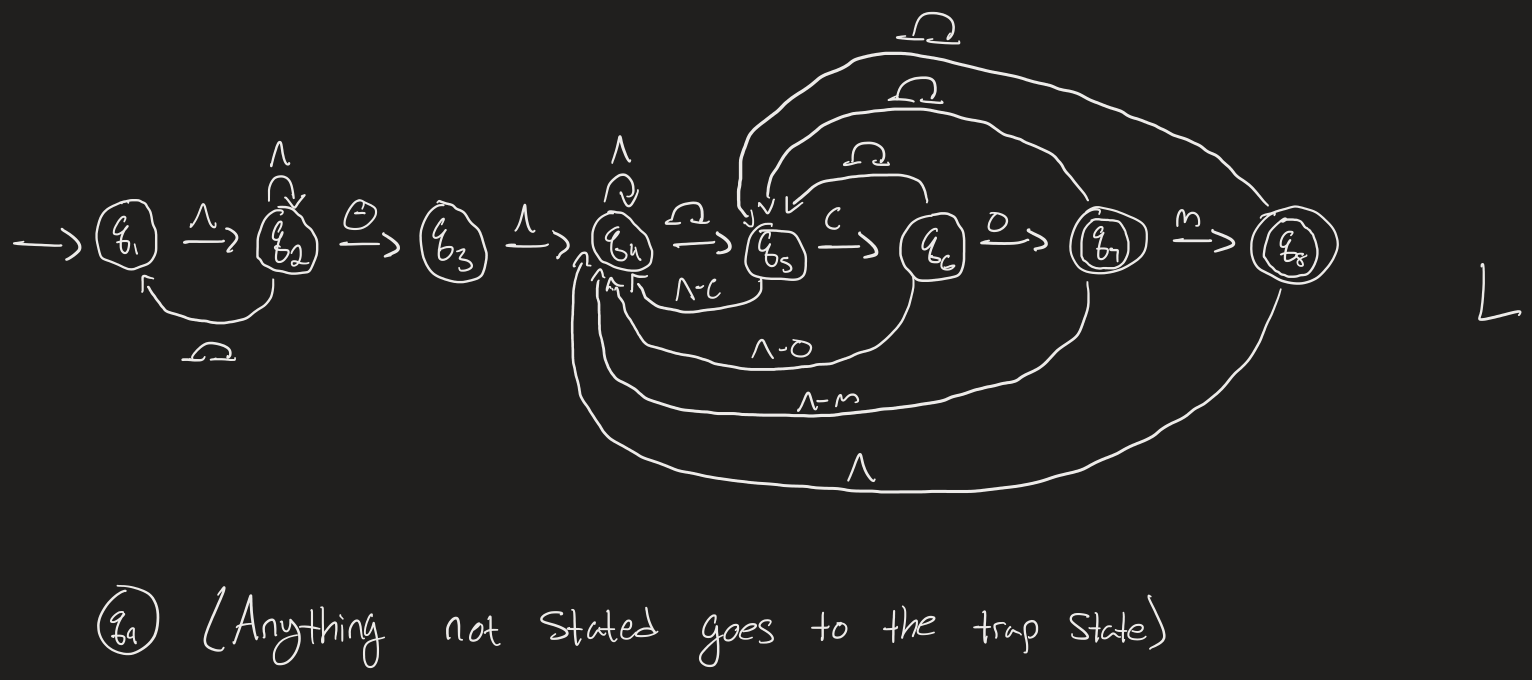 Ω
Ω
Λ Λ Ω
q₁ Λ q₂ Θ q₃ Λ q₄ Ω q₅ C q₆ O q₇ m q₈
Λ-C
Ω Λ-O
Λ-m
Λ
L
q₉ (Anything not stated goes to the trap state)